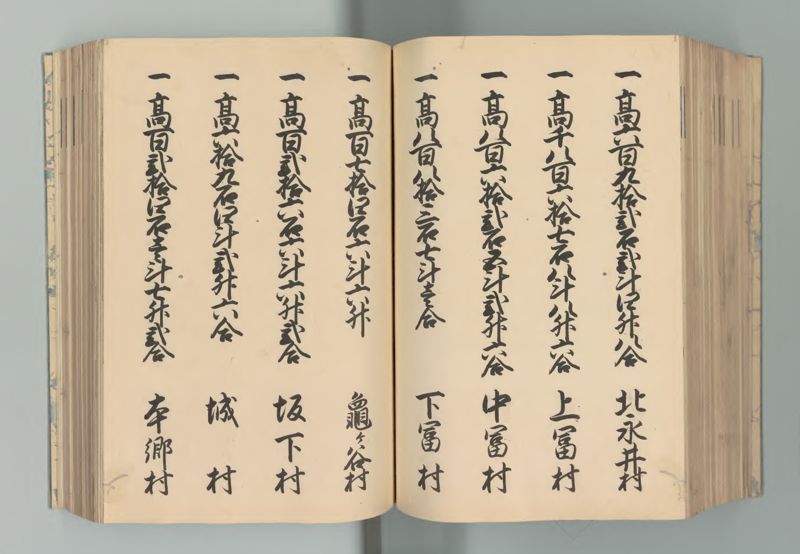 一高六百九拾弐石弐斗四升八合 北永井村
一高千八百六拾七石八斗八升六合 上冨村
一高八百六拾弐石五斗弐升六合 中冨村
一高八百八拾二石七斗壱合 下冨村
一高百七拾四石六斗六升 亀ヶ谷村
一高百弐拾六石六斗六升弐合 坂下村
一高六拾九石四斗弐升六合 城村
一高百弐拾四石壱斗七升弐合 本郷村